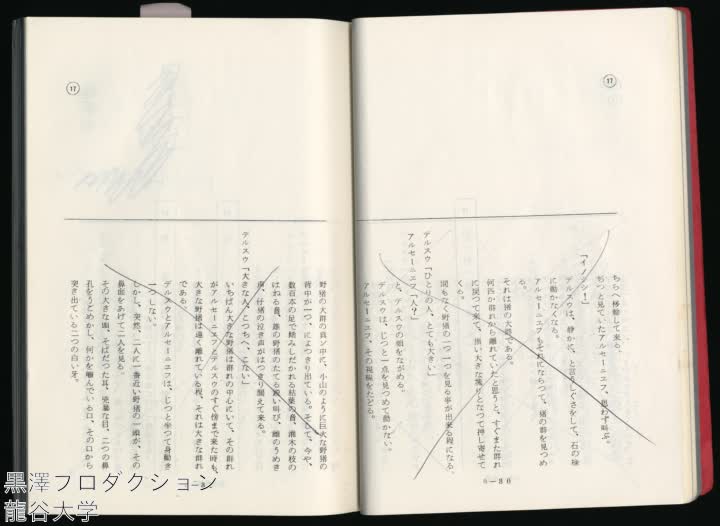 ちらへ移動して来る。
ぢつと見ていたアルセーニエフ、思わず叫ぶ。
「イノシシ!」
デルスウは、静かに、と言うしぐさをして、石の様
に動かなくなる。
アルセーニエフもそれにならつて、猪の群を見つめ
る。
それは猪の大群である。
何匹か群れから離れていたと思うと、すぐまた群れ
に戻つて来て、黒い大きな塊りとなつて押し寄せて
くる。
間もなく野猪の一つ一つを見る事が出来る程になる。
デルスウ「ひとりの人、とても大きい」
と、デルスウの頬をながめる。
アルセーニエフ「人?」
デルスウは、じつと一点を見つめて動かない。
アルセーニエフ、その視線をたどる。
6-30
17
野猪の大群の真ツ中に、小山のように巨大な野猪の
背中が一つ、によつきり出ている。そして、今や、
数百本の足で踏みしだかれる枯葉の音、灌木の枝の
はねる音、雄の野猪のたてる鋭い叫び、雌のうめき
声、仔猪の泣き声がはつきり聞えて来る。
デルスウ「大きな人、こつちへ、こない」
いちばん大きな野猪は群れの中心にいて、その群れ
がアルセーニエフとデルスウのすぐ傍まで来た時も、
大きな野猪は遠く離れている程、それは大きな群れ
である。
デルスウとアルセーニエフは、じつと坐つて身動き
一つしない。
しかし、突然、二人に一番近い野猪の一頭が、その
鼻面をあげて二人を見る。
その大きな頭、そばだつた耳、兇暴な目、二つの鼻
孔をうごめかし、何かを噛んでいる口、その口から
突き出ている二つの白い牙。
17
黒澤プロダクション
龍谷大学